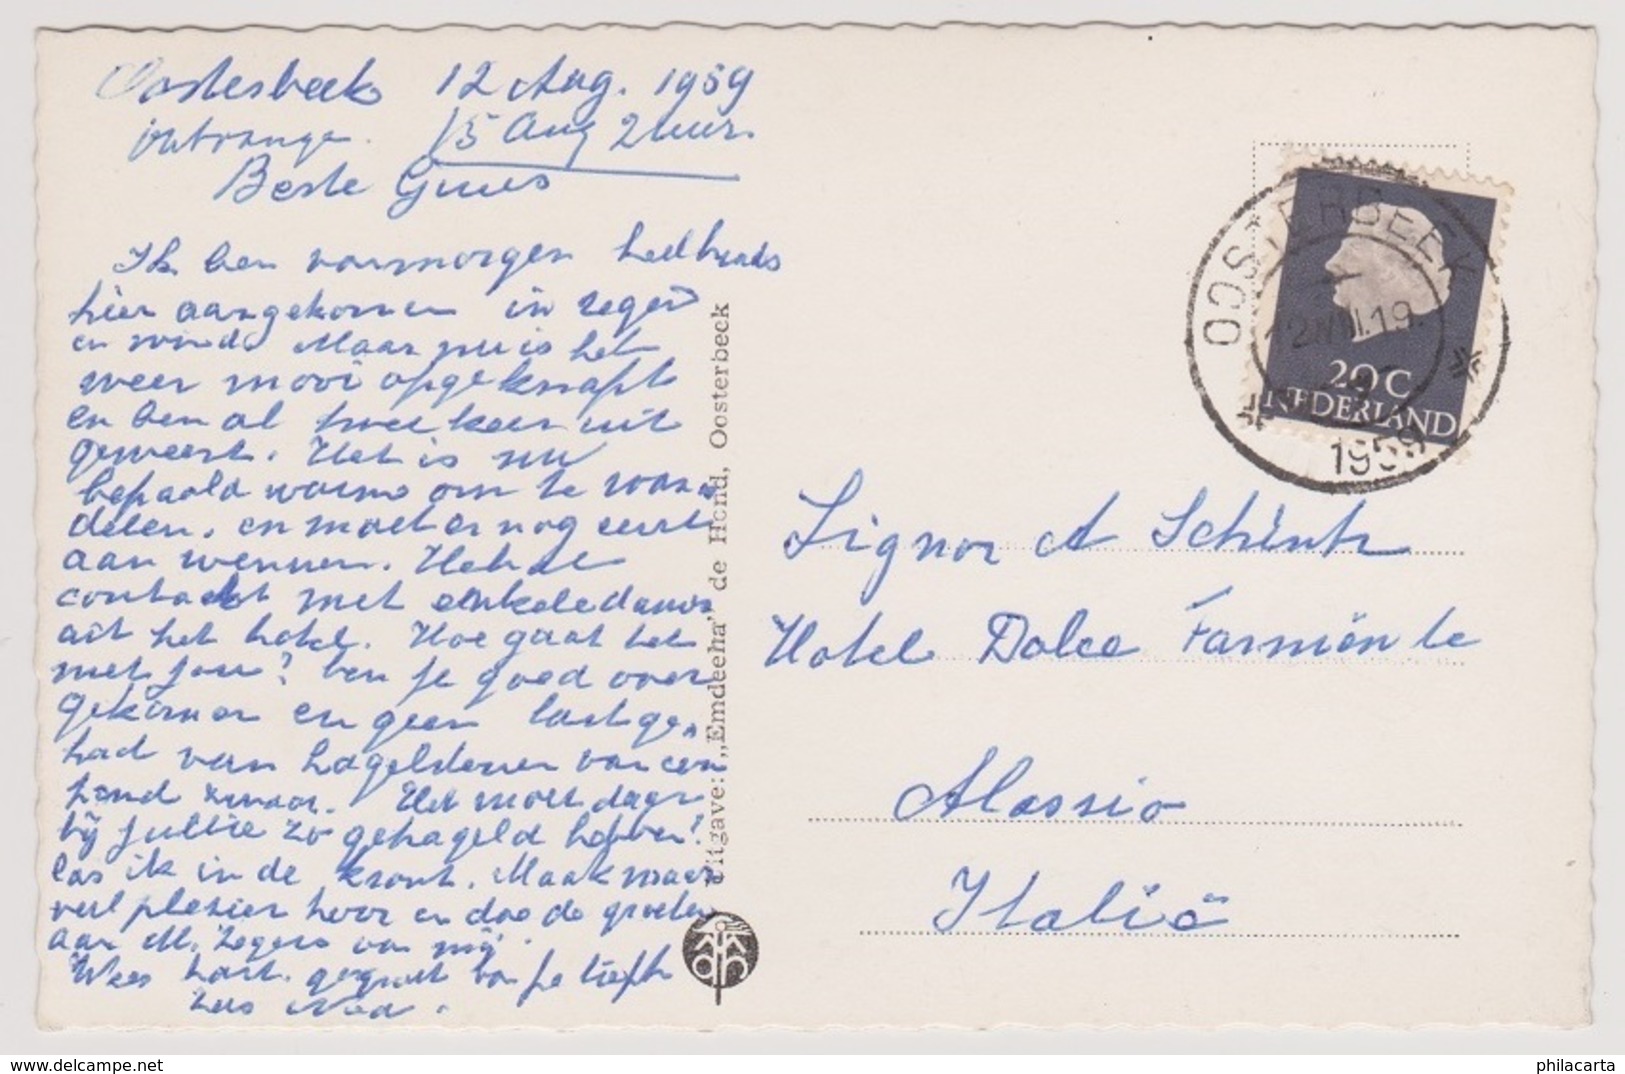 Oosterbeek 12 Aug. 1959
ontvangen 15 Aug 2 uur.
Beste Guus
Ik ben vanmorgen heelhuids
hier aangekomen in regen
en wind. Maar nu is het
weer mooi opgeknapt
en ben al twee keer uit
geweest. Het is nu
bepaald warm om te wan-
delen, en moet er nog eerst
aan wennen. Heb al
contact met enkele dames
uit het hotel. Hoe gaat het
met jou? ben je goed over
gekomen en geen last ge-
had van hagelstenen van een
hond zwaar. Het moet daar
bij jullie zo gehageld hebben!
las ik in de krant. Maak maar
veel plezier hoor en doe de groeten
aan M. Zegers van mij.
Wees hart. gegroet van je liefh
zus
Uitgave: „Emdeeha" de Hond, Oosterbeek
OOSTERBEEK
12.VIII.19.
1959
20 C
NEDERLAND
Signor A Schink
Hotel Dolce
Alassio
Italië
philacarta